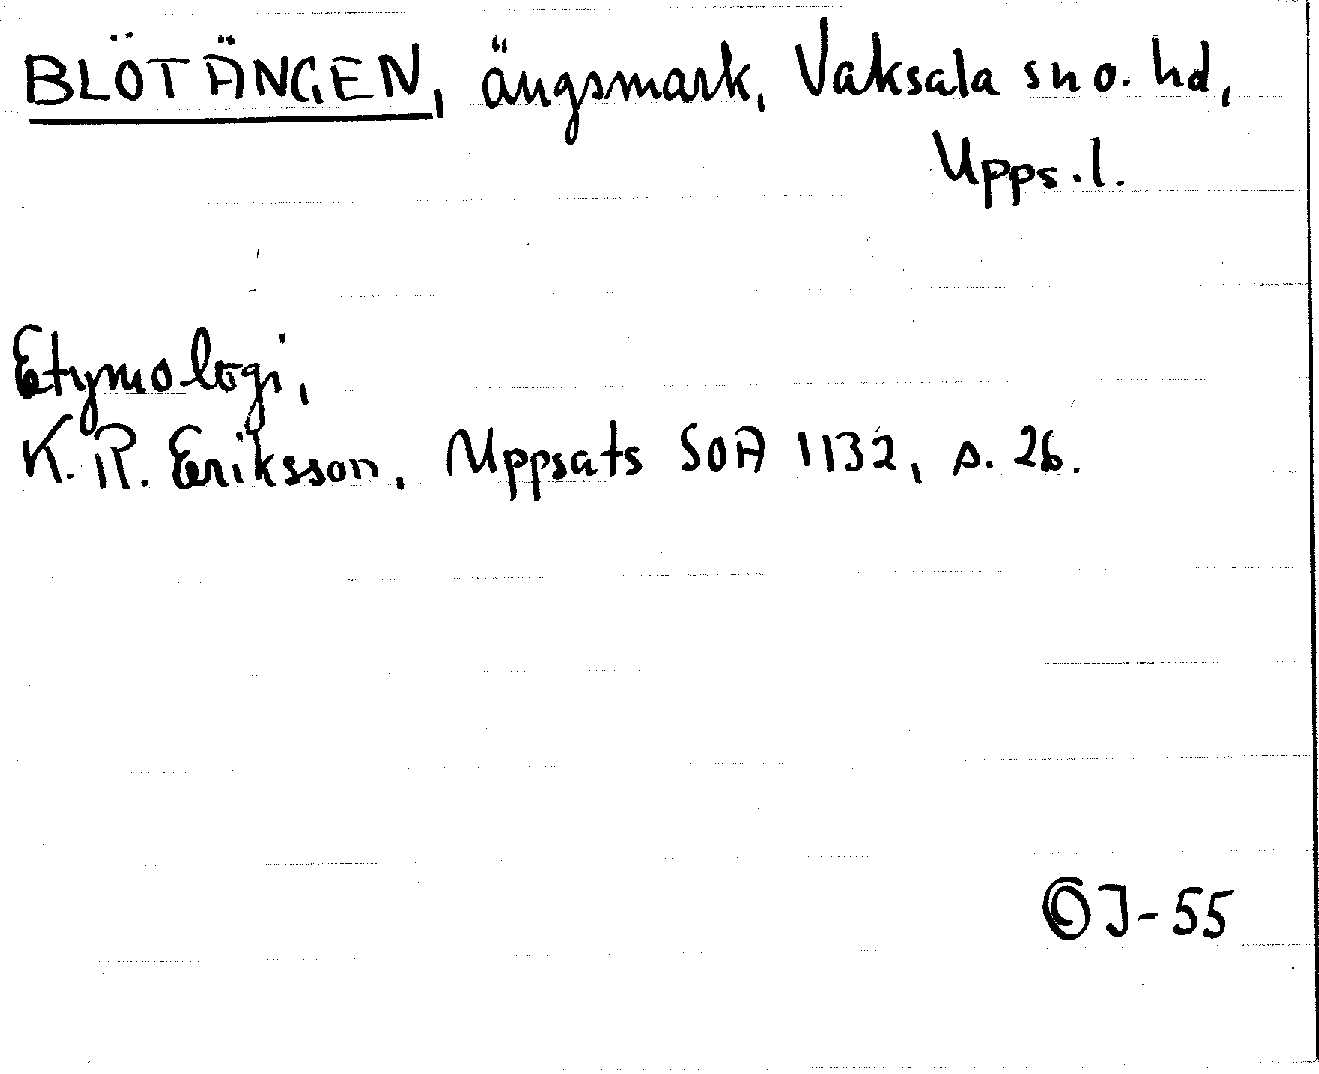 BLÖTÄNGEN, ängsmark, Vaksala sn o. hd,
Upps. l.
Etymologi,
K. R. Eriksson, Uppsats SOA 1132, s. 26.
OJ-55